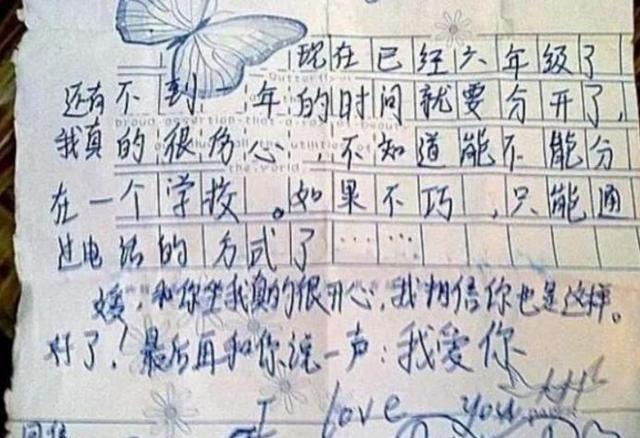 现在已经六年级了
还有不到一年的时间就要分开了,
我真的很伤心,不知道能不能分
在一个学校。如果不巧,只能通
过电话的方式了……
媛,和你坐我真的很开心,我相信你也是这样。
好了!最后再和你说一声:我爱你
I love you